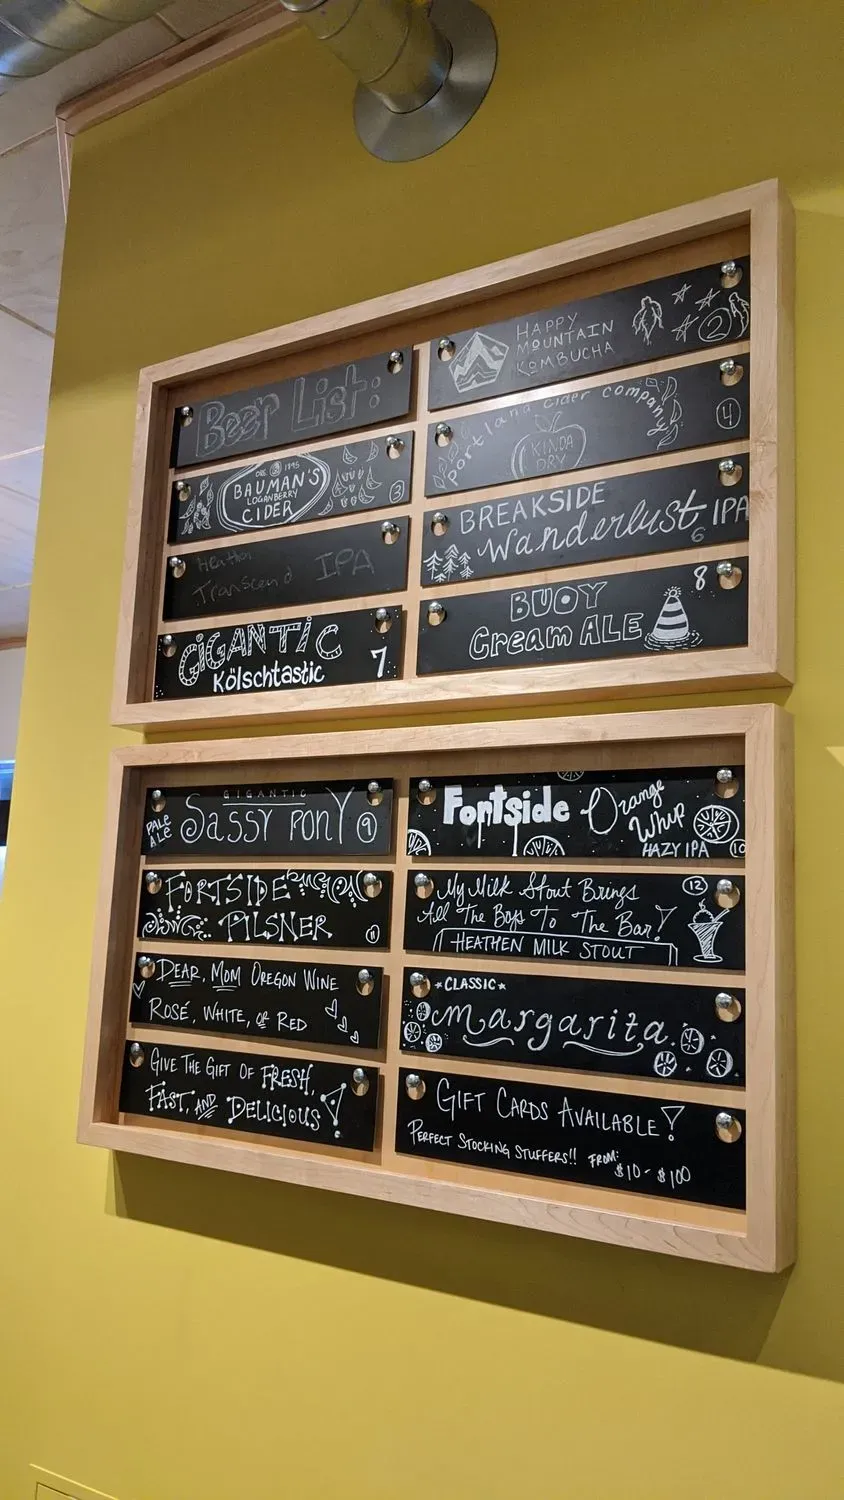 Beer List:
HAPPY
MOUNTAIN
KOMBUCHA
2
EST. 1895
BAUMAN'S
LOGANBERRY
CIDER
3
Portland cider company
KINDA
DRY
4
Heathen
Transcend IPA
BREAKSIDE
Wanderlust IPA
6
GIGANTIC
Kölschtastic
7
BUOY
Cream ALE
8
GIGANTIC
PALE
ALE
SASSY PONY
9
Fortside Orange
Whip
HAZY IPA
10
FORTSIDE
PILSNER
11
My Milk Stout Brings
All The Boys To The Bar!
HEATHEN MILK STOUT
12
DEAR, MOM OREGON WINE
ROSÉ, WHITE, OR RED
*CLASSIC*
margarita
GIVE THE GIFT OF FRESH,
FAST, AND DELICIOUS!
GIFT CARDS AVAILABLE!
PERFECT STOCKING STUFFERS!! FROM:
$10 - $100